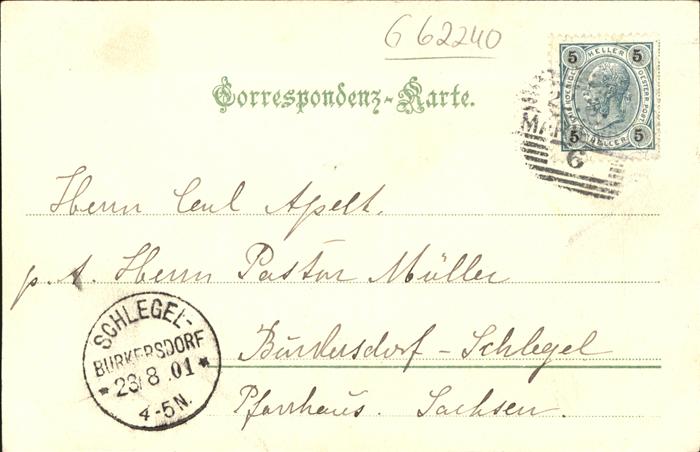 G 62240
5 HELLER 5
KAIS. KOENIGL. OESTERR. POST
5 HELLER 5
MAR
6
Correspondenz-Karte.
Herrn Carl Apelt.
p. A. Herrn Pastor Müller
Burkersdorf - Schlegel
Pfarrhaus. Sachsen.
SCHLEGEL-
BURKERSDORF
* 23/8.01 *
4-5N.